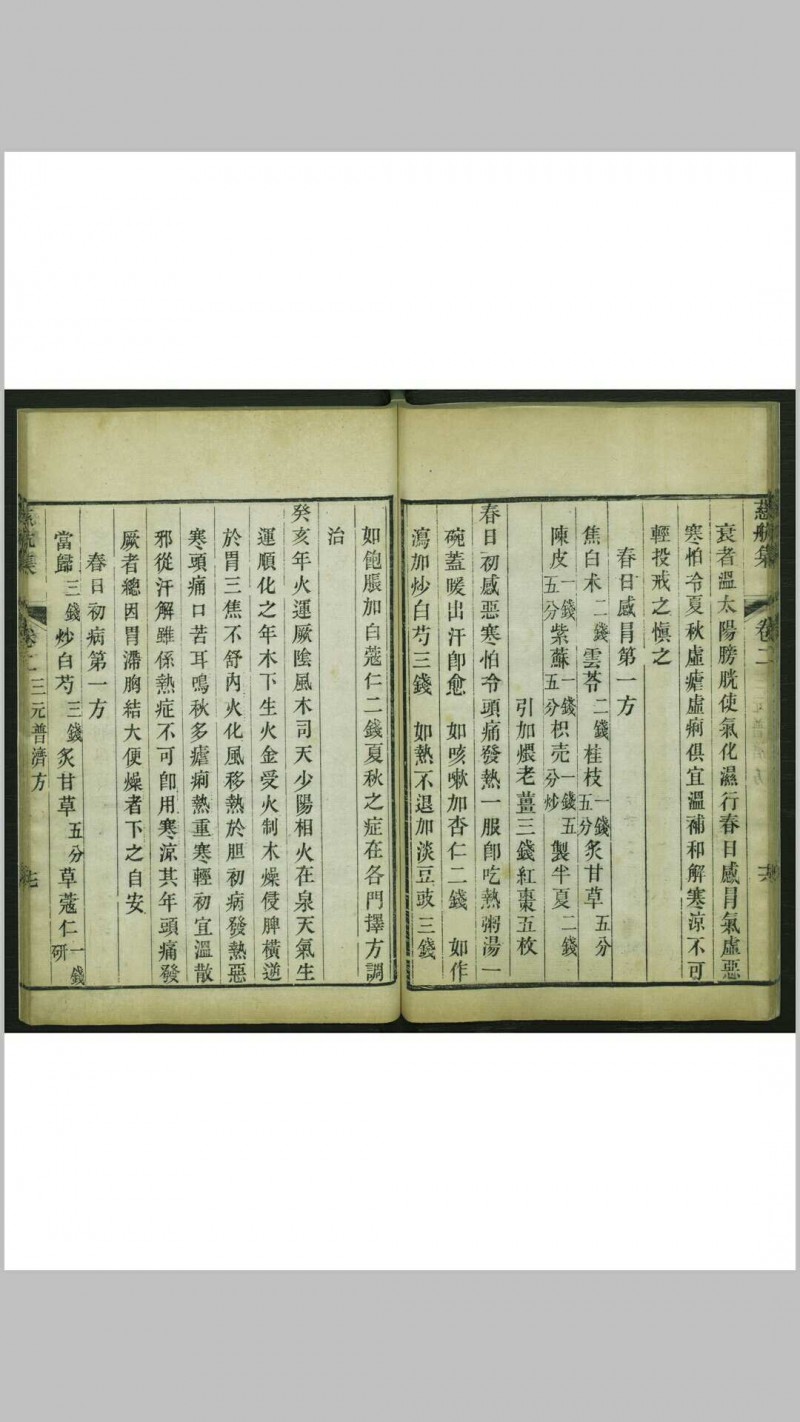 慈航集 卷二
衰者溫太陽膀胱使氣化濕行春日感冒氣虛惡
寒怕冷夏秋虛瘧虛痢俱宜溫補和解寒涼不可
輕投戒之慎之
春日感冒第一方
焦白朮二錢雲苓二錢桂枝一錢五分炙甘草五分
陳皮一錢五分紫蘇一錢五分枳壳一錢五分炒製半夏二錢
引加煨老薑三錢紅棗五枚
春日初感惡寒怕冷頭痛發熱一服卽吃熱粥湯一
碗蓋暖出汗卽愈 如咳嗽加杏仁二錢 如作
瀉加炒白芍三錢 如熱不退加淡豆豉三錢
如飽脹加白蔻仁二錢夏秋之症在各門擇方調
治
癸亥年火運厥陰風木司天少陽相火在泉天氣生
運順化之年木下生火金受火制木燥侵脾橫逆
於胃三焦不舒內火化風移熱於胆初病發熱惡
寒頭痛口苦耳鳴秋多瘧痢熱重寒輕初宜溫散
邪從汗解雖係熱症不可卽用寒涼其年頭痛發
厥者總因胃滯胸結大便燥者下之自安
春日初病第一方
當歸三錢炒白芍三錢炙甘草五分草蔻仁一錢研
慈航集 卷二 三元普濟方 十七